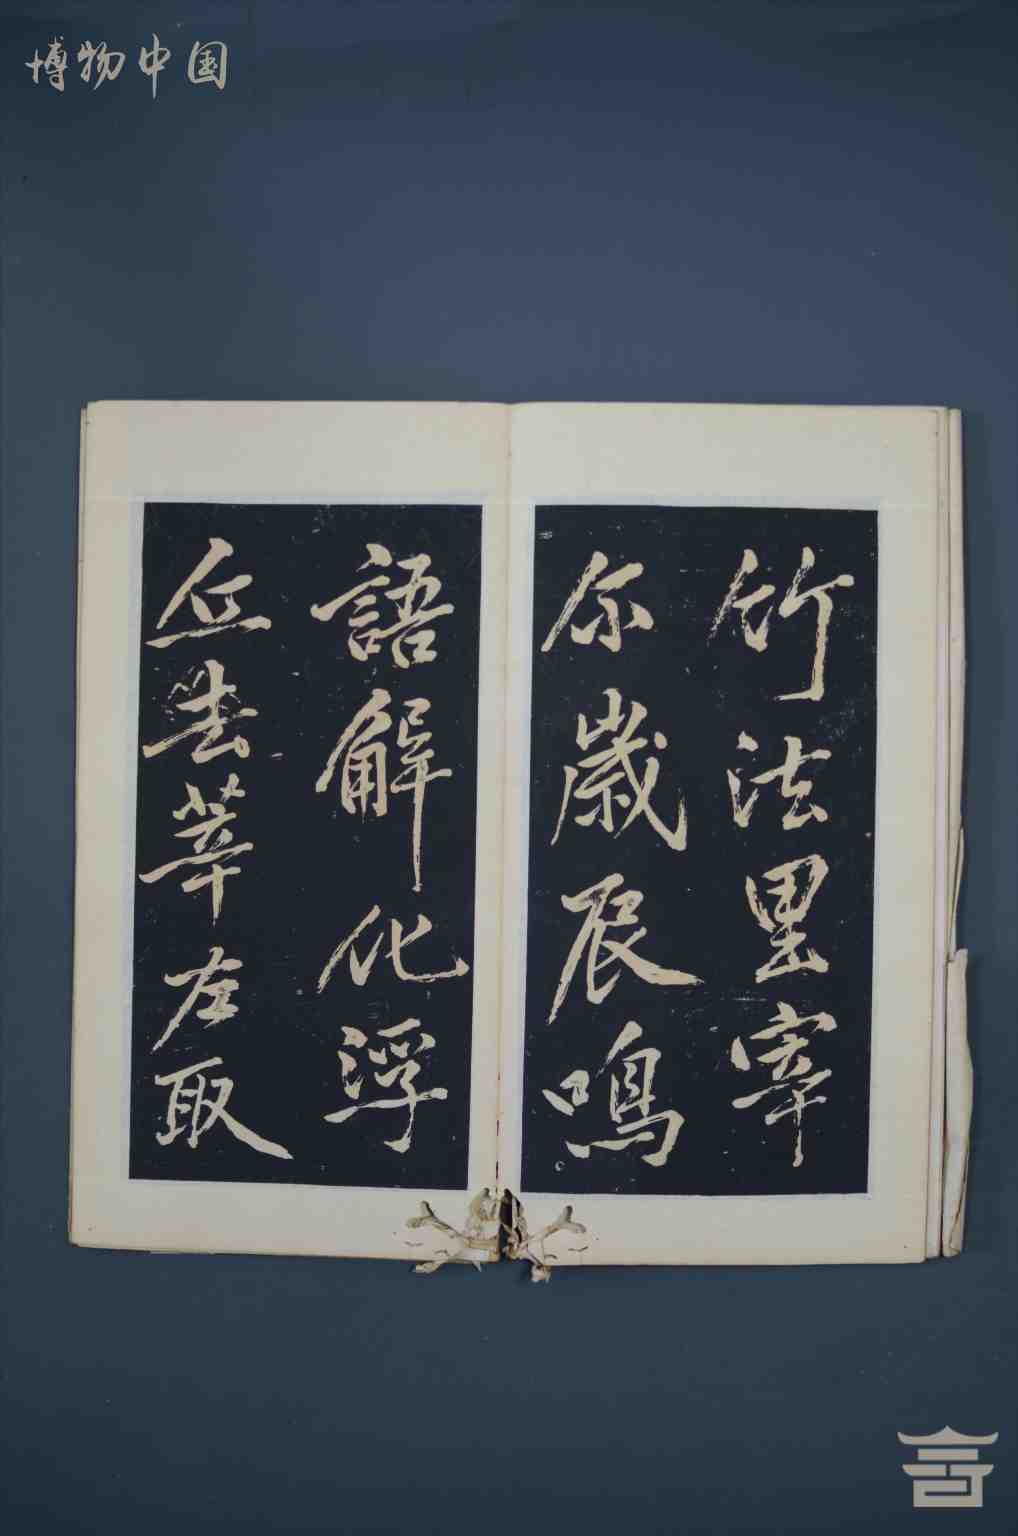 博物中国
竹法里宰
尔歲辰鳴
語解化浮
丘莘左取